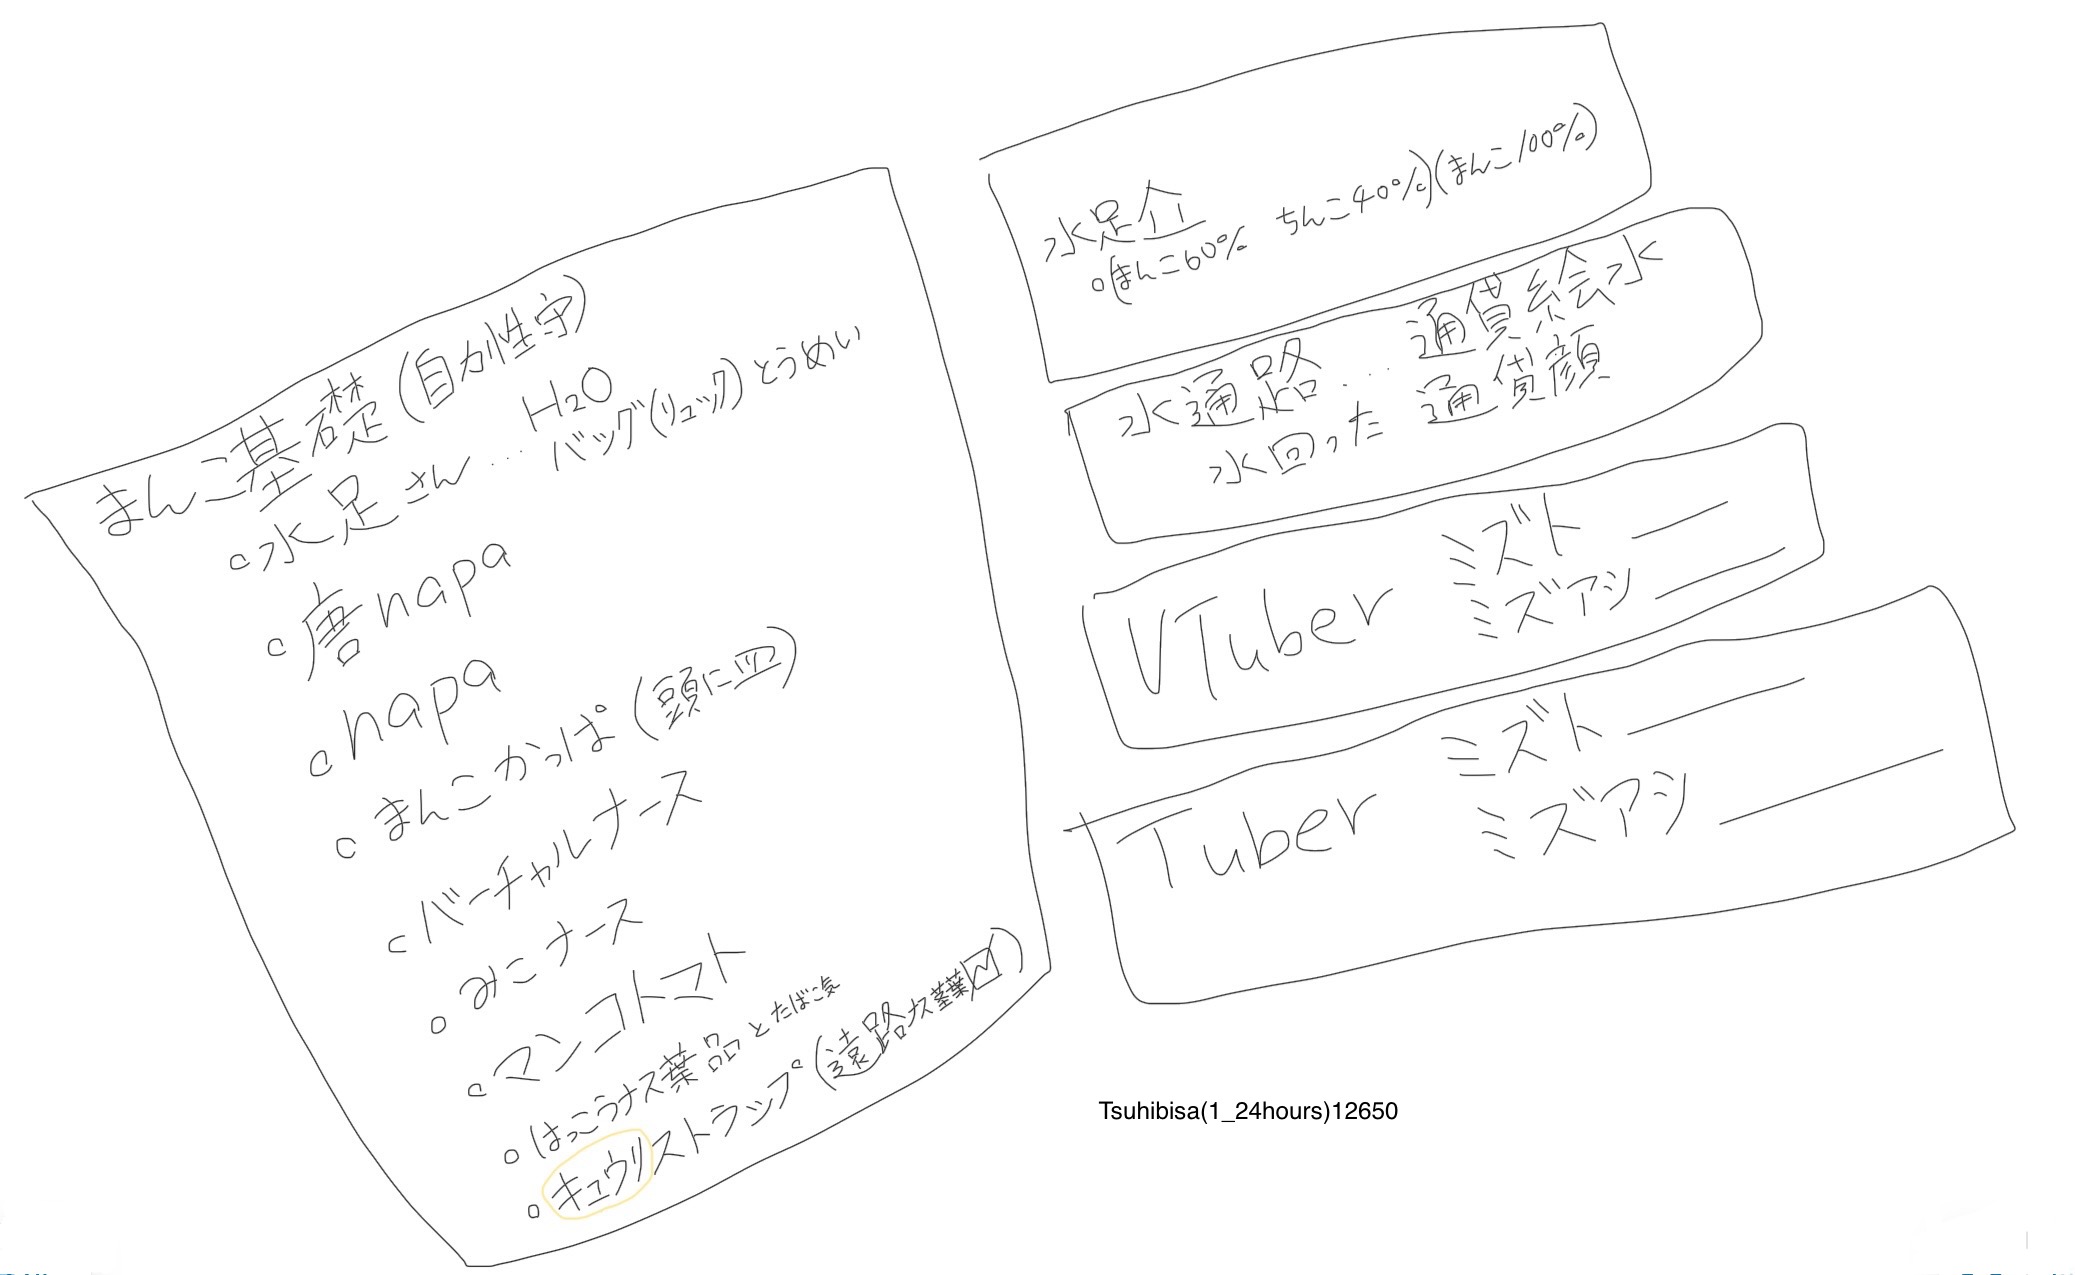 まんこ基礎(自力性守)
○水足さん…H2O
バッグ(リュック)とうめい
○唐napa
○napa
○まんこかっぱ(頭に皿)
○バーチャルナース
○みこナース
○マンコトマト
○はっこうナス葉品とたばこ気
○キュウリストラップ(遠路ナス茎葉)
水足企
○(まんこ60% ちんこ40%)(まんこ100%)
水通路…通貨絵水
水回った 通貨顔
VTuber ミズト
ミズアシ
Tuber ミズト
ミズアシ
Tsuhibisa(1_24hours)12650